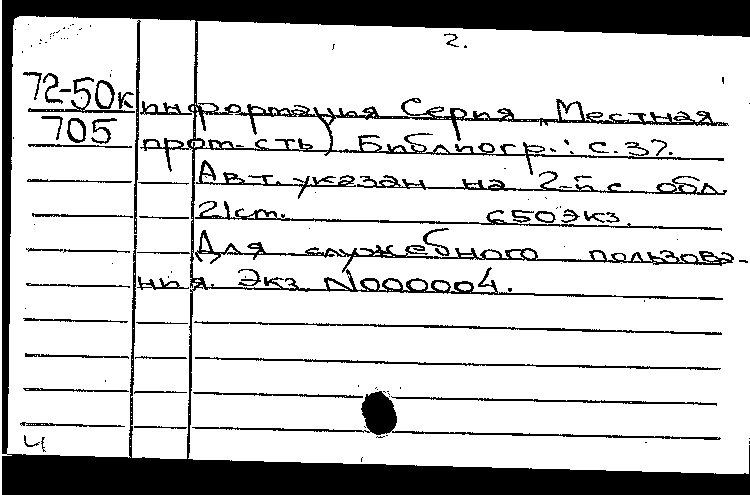 2.
72-50к информация Серия „Местная
705 пром-сть) Библиогр.: с. 37.
Авт. указан на 2-й с. обл.
21см. 650 экз.
Для служебного пользова-
ния. Экз. N000004.
Ч